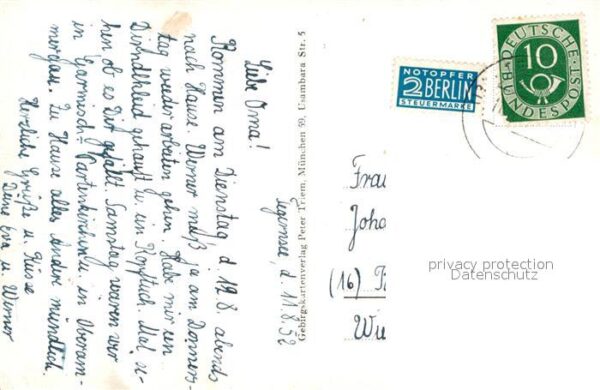 Tegernsee, d. 17.8.52
Liebe Oma!
Kommen am Dienstag, d. 19.8. abends
nach Hause. Werner muß ja am Donners-
tag wieder arbeiten gehen. Habe mir ein
Dirndlkleid gekauft u. ein Kopftuch. Mal se-
hen ob es Dir gefällt. Samstag waren wir
in Garmisch-Partenkirchen u. in Oberam-
mergau. Zu Hause alles Andere mündlich.
Herzliche Grüße u. Küsse
Deine Eva u. Werner
Gebirgskartenverlag Peter Triem, München 59, Usambara Str. 5
NOTOPFER
2 BERLIN
STEUERMARKE
DEUTSCHE
10
BUNDESPOST
Frau
Joha
(16)
Wie
privacy protection
Datenschutz